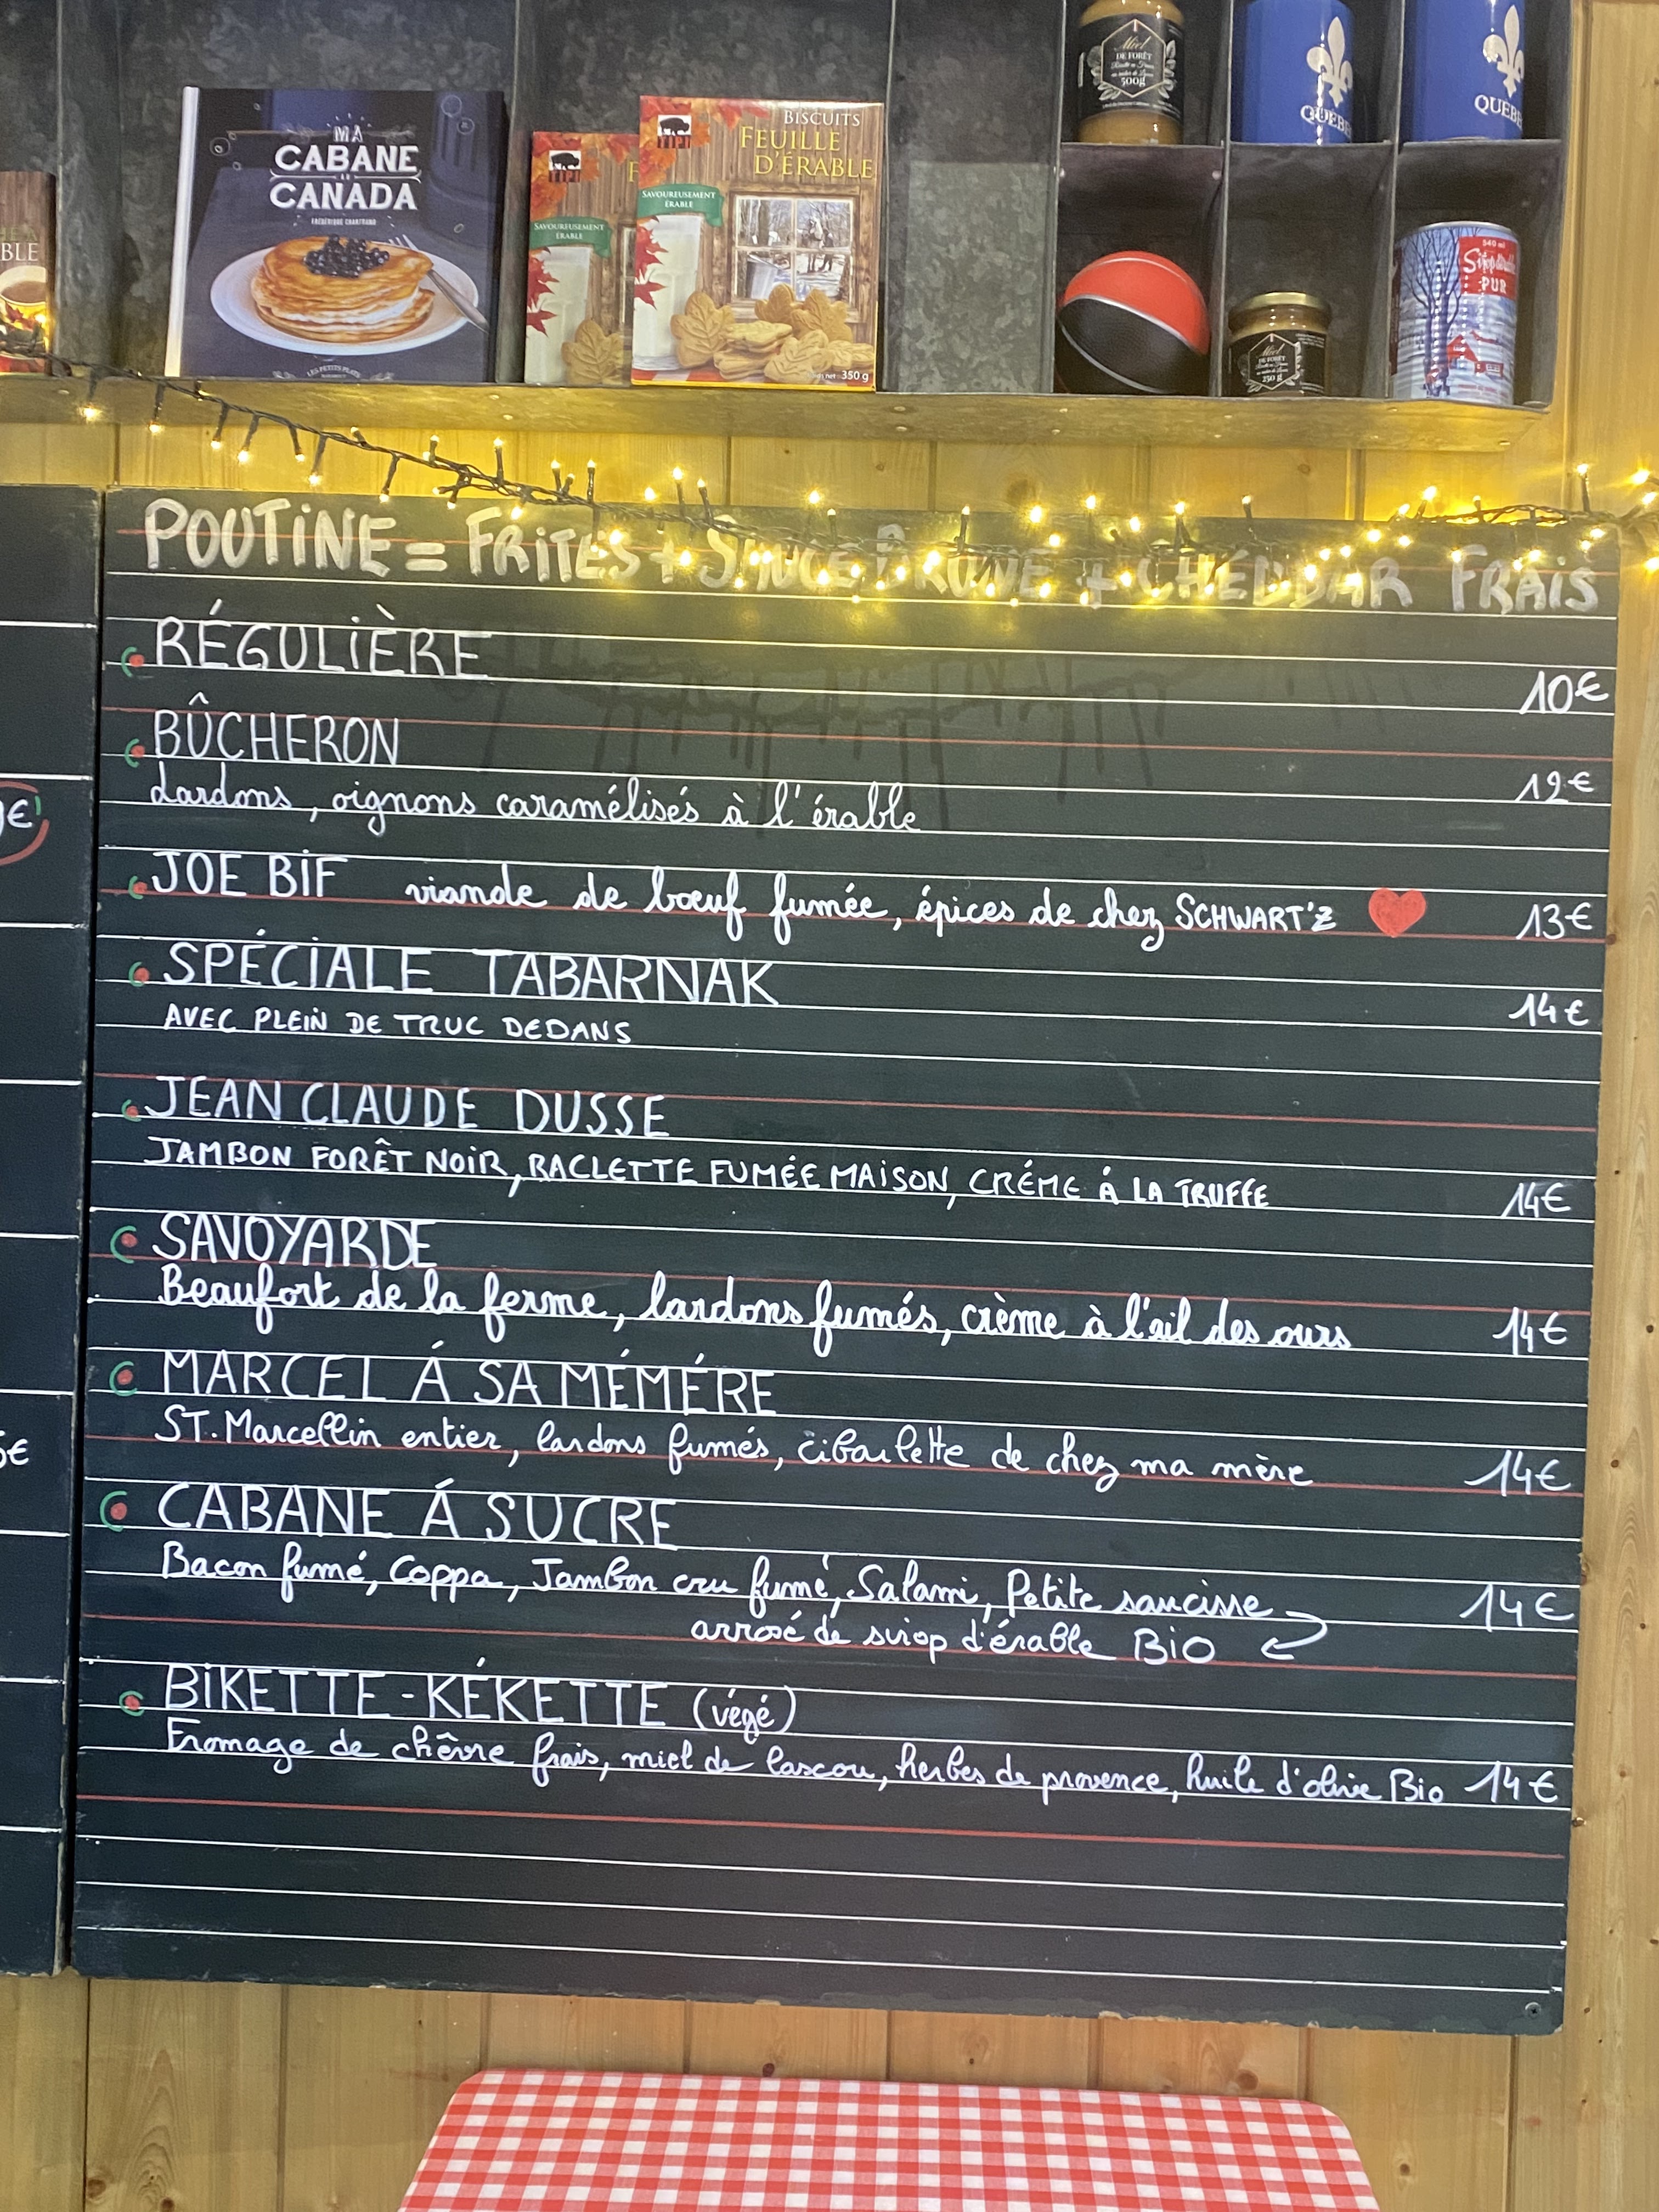 MA
CABANE
AU
CANADA
FRÉDÉRIQUE CHARTRAND
LES PETITS PLATS
BLE
SAVOUREUSEMENT
ÉRABLE
TIPI
BISCUITS
FEUILLE
D'ÉRABLE
SAVOUREUSEMENT
ÉRABLE
350 g
Miel
DE FORÊT
500g
QUÉBE
QUÉBE
Miel
DE FORÊT
250 g
540 ml
PUR
POUTINE = FRITES + SAUCE BRUNE + CHEDDAR FRAIS
RÉGULIÈRE 10€
BÛCHERON 12€
Lardons, oignons caramélisés à l'érable
JOE BIF viande de bœuf fumée, épices de chez SCHWART'Z 13€
SPÉCIALE TABARNAK 14€
AVEC PLEIN DE TRUC DEDANS
JEAN CLAUDE DUSSE
JAMBON FORÊT NOIR, RACLETTE FUMÉE MAISON, CRÉME Á LA TRUFFE 14€
SAVOYARDE
Beaufort de la ferme, lardons fumés, crème à l'ail des ours 14€
MARCEL Á SA MÉMÉRE
ST. Marcellin entier, lardons fumés, ciboulette de chez ma mère 14€
CABANE Á SUCRE
Bacon fumé, Coppa, Jambon cru fumé, Salami, Petite saucisse 14€
arrosé de sirop d'érable BIO
BIKETTE-KÉKETTE (végé)
Fromage de chêvre frais, miel de Lascou, herbes de provence, huile d'olive Bio 14€